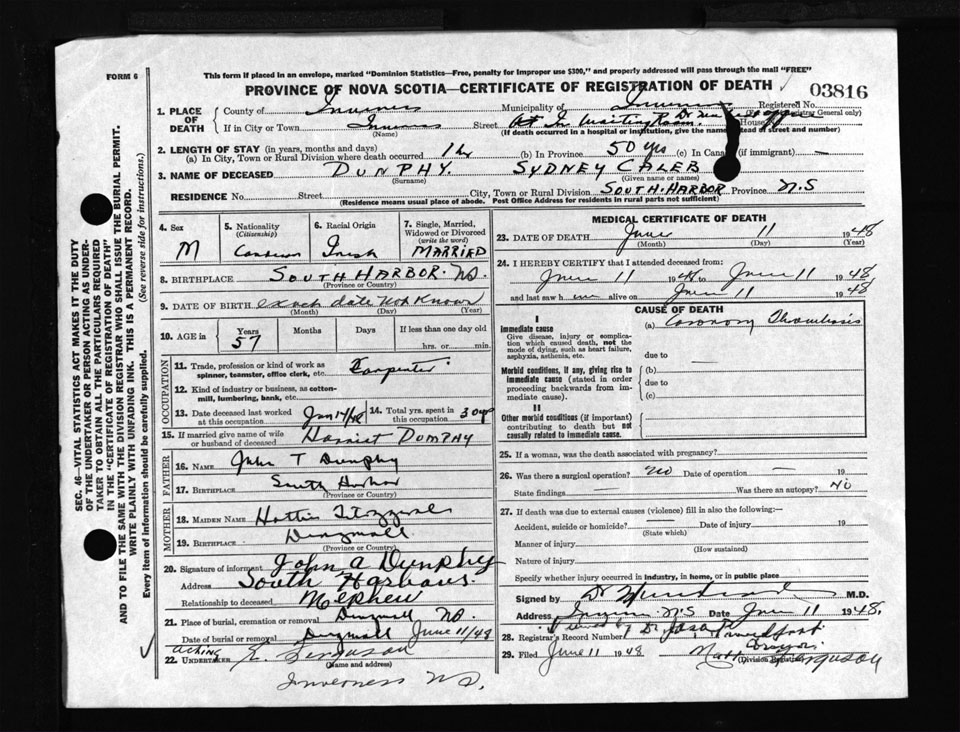 FORM 6
This form if placed in an envelope, marked "Dominion Statistics—Free, penalty for improper use $300," and properly addressed will pass through the mail "FREE"
PROVINCE OF NOVA SCOTIA—CERTIFICATE OF REGISTRATION OF DEATH
03816
1. PLACE OF DEATH
County of Inverness Municipality of Inverness Registered No.
(Registrar General only)
If in City or Town Street In Waiting Room. Dr House
(Name) (If death occurred in a hospital or institution, give the name instead of street and number)
2. LENGTH OF STAY (in years, months and days)
(a) In City, Town or Rural Division where death occurred 1 hr (b) In Province 50 yrs (c) In Canada (if immigrant) —
3. NAME OF DECEASED DUNPHY. SYDNEY CALEB
(Surname) (Given name or names)
RESIDENCE No. Street City, Town or Rural Division SOUTH. HARBOR Province N.S
(Residence means usual place of abode. Post Office Address for residents in rural parts not sufficient)
SEC. 46—VITAL STATISTICS ACT MAKES IT THE DUTY
OF THE UNDERTAKER OR PERSON ACTING AS UNDER-
TAKER TO OBTAIN ALL THE PARTICULARS REQUIRED
IN THE "CERTIFICATE OF REGISTRATION OF DEATH"
AND TO FILE THE SAME WITH THE DIVISION REGISTRAR WHO SHALL ISSUE THE BURIAL PERMIT.
WRITE PLAINLY WITH UNFADING INK. THIS IS A PERMANENT RECORD.
Every item of information should be carefully supplied. (See reverse side for instructions.)
4. Sex M
5. Nationality (Citizenship) Canadian
6. Racial Origin Irish
7. Single, Married, Widowed or Divorced (write the word) MARRIED
8. BIRTHPLACE SOUTH HARBOR. NS.
(Province or Country)
9. DATE OF BIRTH exact date Not Known
(Month) (Day) (Year)
10. AGE in Years 57 Months Days If less than one day old
hrs. or min.
OCCUPATION
11. Trade, profession or kind of work as spinner, teamster, office clerk, etc. Carpenter
12. Kind of industry or business, as cotton-mill, lumbering, bank, etc.
13. Date deceased last worked at this occupation
14. Total yrs. spent in this occupation 30 yrs
15. If married give name of wife or husband of deceased Harriet DUMPHY
FATHER
16. NAME John T Dunphy
17. BIRTHPLACE South Harbor
(Province or Country)
MOTHER
18. MAIDEN NAME Hattie
19. BIRTHPLACE Dingwall
(Province or Country)
20. Signature of informant John A Dunphy
Address South Harbour.
Relationship to deceased Nephew
21. Place of burial, cremation or removal Dingwall NS.
Date of burial or removal Dingwall June 11/48
acting
22. UNDERTAKER K. Ferguson
(Name and address)
Inverness NS.
MEDICAL CERTIFICATE OF DEATH
23. DATE OF DEATH June 11 1948
(Month) (Day) (Year)
24. I HEREBY CERTIFY that I attended deceased from:
June 11 1948 to June 11 1948,
and last saw him alive on June 11 1948
CAUSE OF DEATH
I
Immediate cause
Give disease, injury or complication which caused death, not the mode of dying, such as heart failure, asphyxia, asthenia, etc.
(a) Coronary Thrombosis
due to —
Morbid conditions, if any, giving rise to immediate cause (stated in order proceeding backwards from immediate cause).
(b)
due to
(c)
II
Other morbid conditions (if important) contributing to death but not causally related to immediate cause.
25. If a woman, was the death associated with pregnancy?
26. Was there a surgical operation? no Date of operation — 19
State findings — Was there an autopsy? NO
27. If death was due to external causes (violence) fill in also the following:—
Accident, suicide or homicide? — Date of injury 19
(State which)
Manner of injury
(How sustained)
Nature of injury
Specify whether injury occurred in industry, in home, or in public place
Signed by Dr M.D.
Address N.S Date June 11 1948.
28. Registrar's Record Number
29. Filed June 11 1948
Ferguson
(Division Registrar)